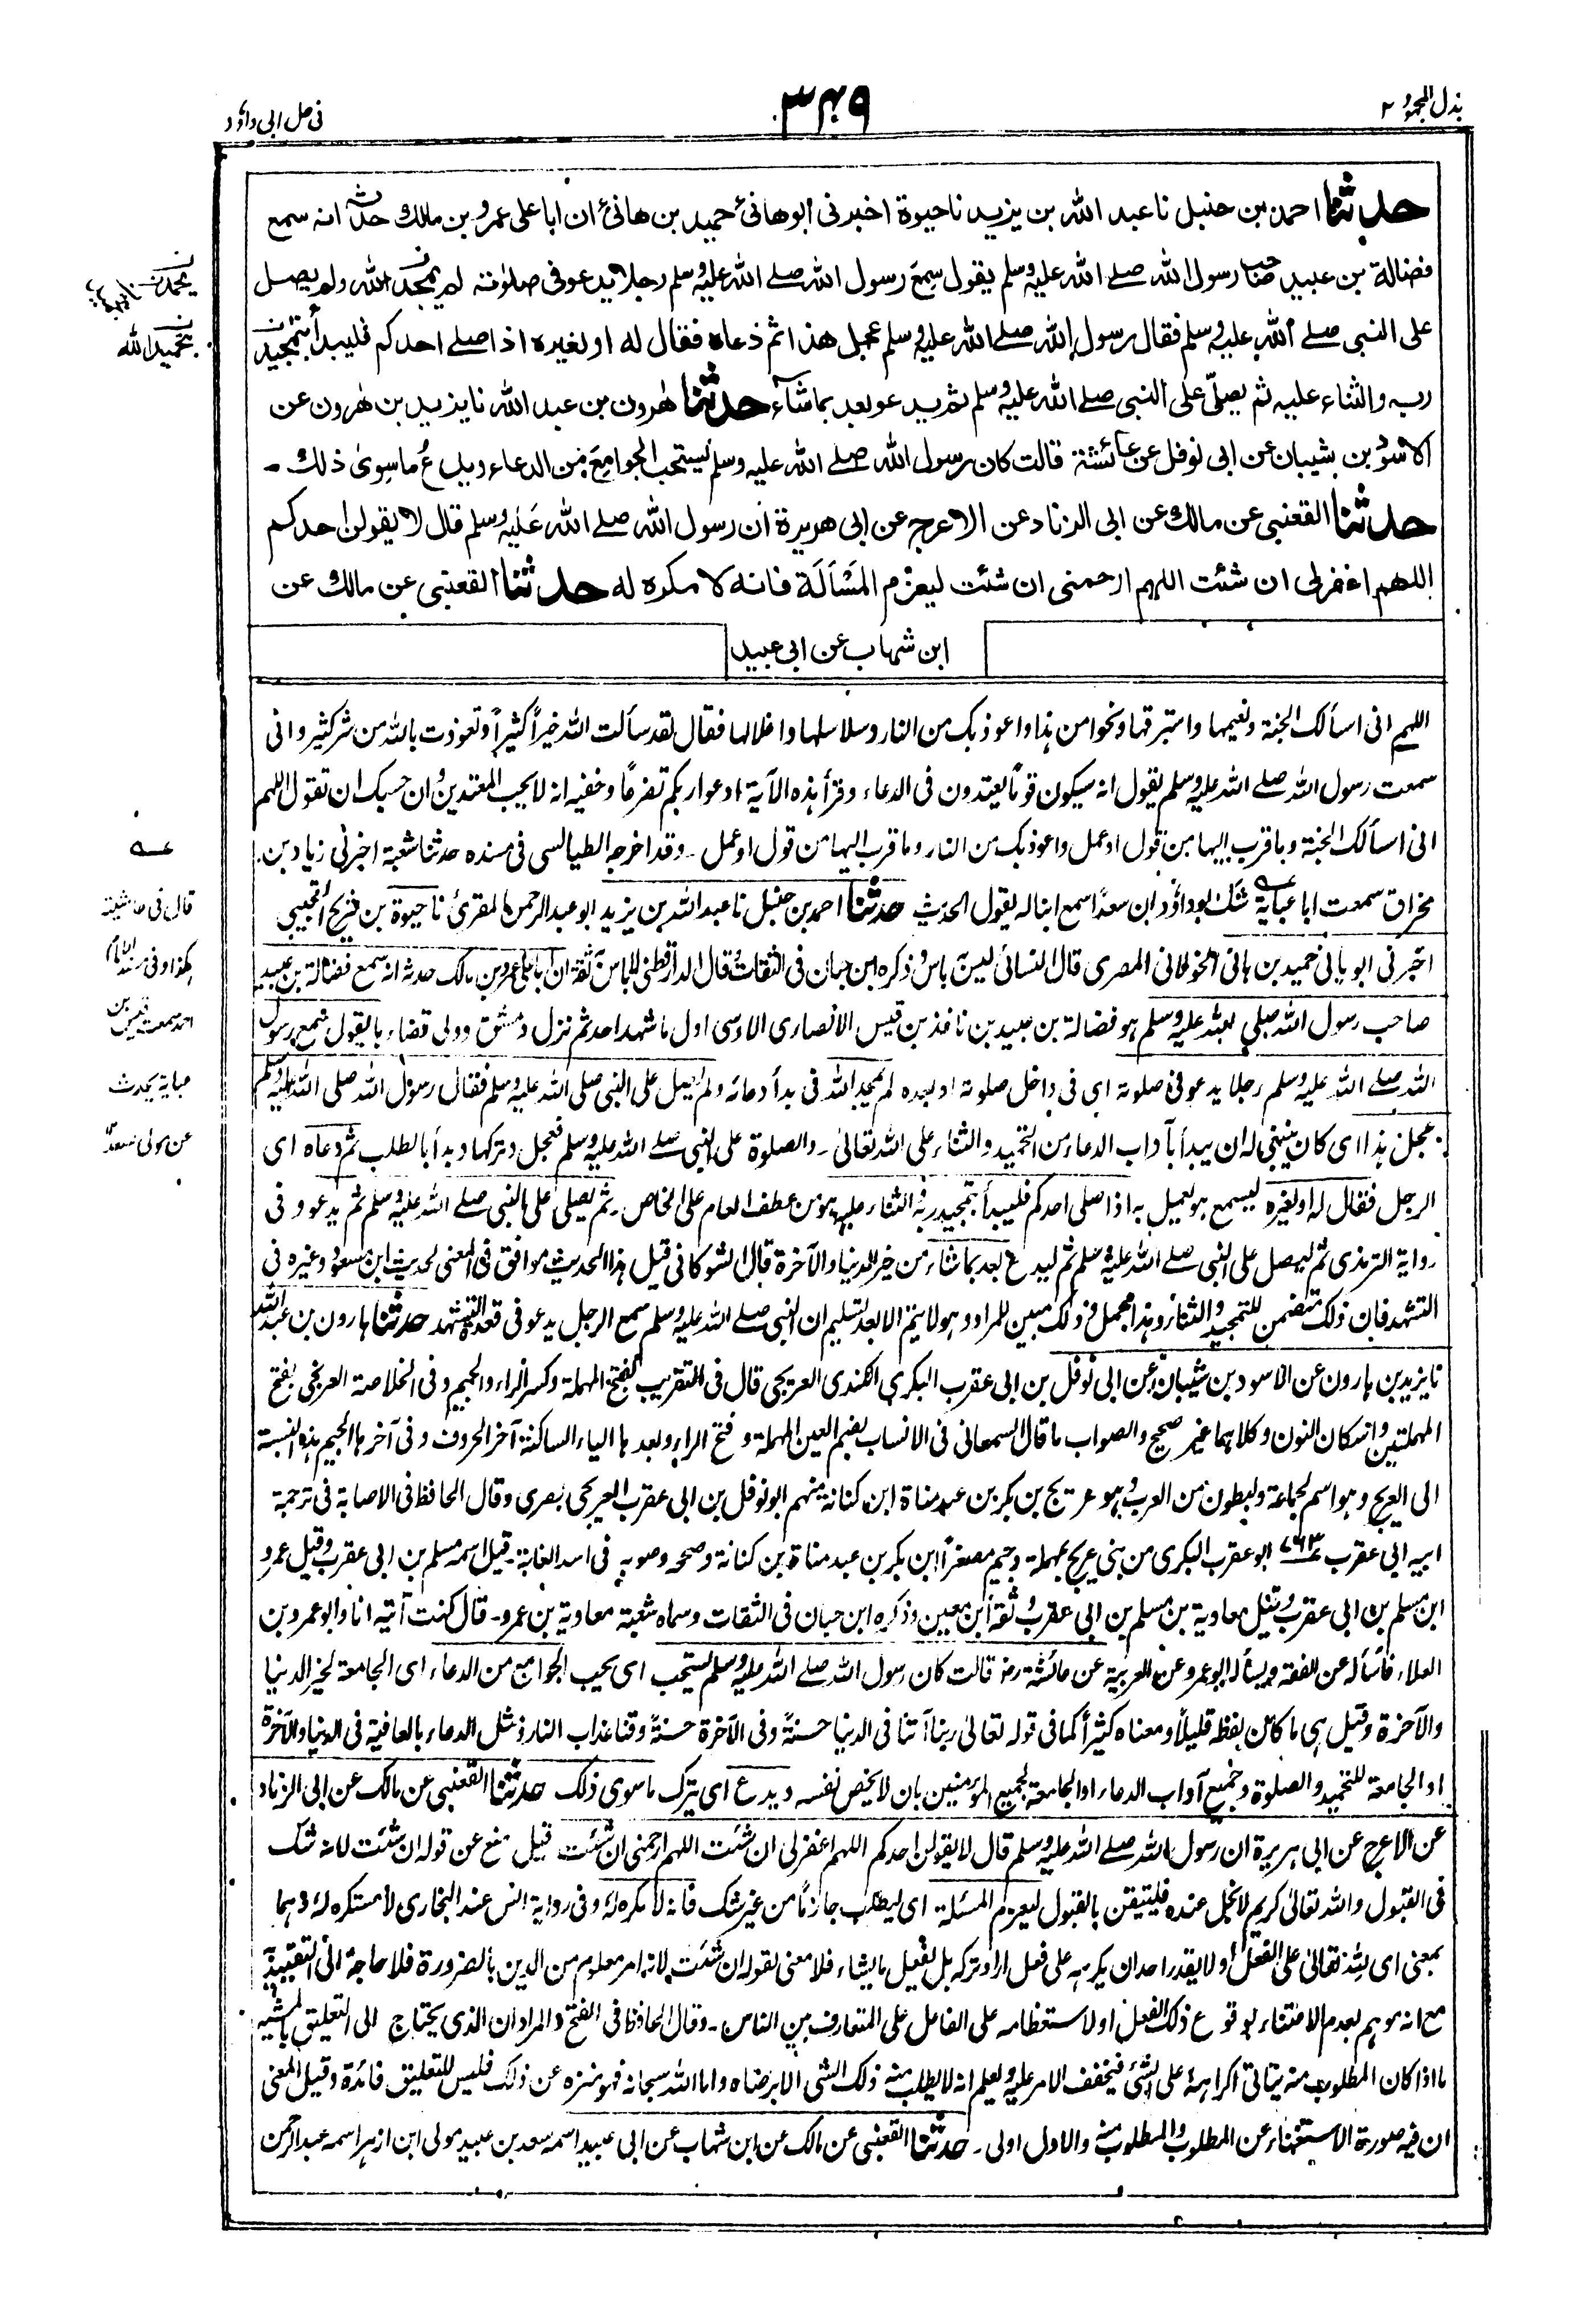 بذل المجهود ٢
٣٤٩
فى حل ابى داؤد
حدثنا احمد بن حنبل نا عبد الله بن يزيد نا حيوة اخبرنى ابو هانئ حميد بن هانئ ان ابا على عمرو بن مالك حدثه انه سمع
فضالة بن عبيد صاحب رسول الله صلے الله عليه وسلم يقول سمع رسول الله صلے الله عليه وسلم رجلا يدعو فى صلوٰته لم يمجد الله ولم يصل
على النبى صلے الله عليه وسلم فقال رسول الله صلے الله عليه وسلم عجل هذا ثم دعاه فقال له او لغيره اذا صلے احدكم فليبدأ بتمجيد
ربه والثناء عليه ثم يصلّى على النبى صلے الله عليه وسلم ثم يدعو بعد بما شاء حدثنا هٰرون بن عبد الله نا يزيد بن هٰرون عن
الاسود بن شيبان عن ابى نوفل عن عائشة قالت كان رسول الله صلے الله عليه وسلم يستحب الجوامع من الدعاء ويدع ما سوىٰ ذلك ـ
حدثنا القعنبى عن مالك عن ابى الزناد عن الاعرج عن ابى هريرة ان رسول الله صلے الله عليه وسلم قال لا يقولن احدكم
اللهم اغفر لى ان شئت اللهم ارحمنى ان شئت ليعزم المسألة فانه لا مكره له حدثنا القعنبى عن مالك عن
ابن شهاب عن ابى عبيد
اللهم انى اسألك الجنة ونعيمها واستبرقها ونحوا من هذا واعوذ بك من النار وسلاسلها واغلالها فقال لقد سألت الله خيراً كثيراً وتعوذت بالله من شر كثير وانى
سمعت رسول الله صلے الله عليه وسلم يقول انه سيكون قوماً يعتدون فى الدعاء وقرأ هذه الآية ادعوا ربكم تضرعاً وخفيه انه لا يحب المعتدين وان حسبك ان تقول اللهم
انى اسألك الجنة وما قرب اليها من قول او عمل واعوذ بك من النار وما قرب اليها من قول او عمل ـ وقد اخرجه الطيالسى فى مسنده حدثنا شعبة اخبرنى زياد بن
مخراق سمعت ابا عباية شك ابو داؤد ابن سعداً سمع ابنا له يقول الحديث حدثنا احمد بن حنبل نا عبد الله بن يزيد ابو عبد الرحمن المقرئ نا حيوة بن شريح التجيبى
اخبرنى ابو هانى حميد بن هانى الخولانى المصرى قال النسائى ليس به باس وذكره ابن حبان فى الثقات وقال الدارقطنى لا باس به ثقة ان ابا على عمرو بن مالك حدثه انه سمع فضالة بن عبيد
صاحب رسول الله صلى الله عليه وسلم هو فضالة بن عبيد بن نافذ بن قيس الانصارى الاوسى اول ما شهد احد ثم نزل دمشق وولى قضاء ها يقول سمع رسول
الله صلے الله عليه وسلم رجلا يدعو فى صلوته اى فى داخل صلوته او بعده لم يمجد الله فى بدأ دعائه ولم يصل على النبى صلى الله عليه وسلم فقال رسول الله صلى الله عليه وسلم
عجل هذا اى كان ينبغى له ان يبدأ بآداب الدعاء من التحميد والثناء على الله تعالىٰ ـ والصلوة على النبى صلے الله عليه وسلم فعجل وتركها وبدأ بالطلب ثم دعاه اى
الرجل فقال له او لغيره ليسمع هو يعمل به اذا صلى احدكم فليبدأ بتمجيد ربه والثناء عليه هو من عطف العام على الخاص ـ ثم يصلى على النبى صلے الله عليه وسلم ثم يدعو وفى
رواية الترمذى ثم ليصل على النبى صلے الله عليه وسلم ثم ليدع بعد بما شاء من خير الدنيا والآخرة قال الشوكانى قيل هذا الحديث موافق فى المعنى لحديث ابن مسعود وغيره فى
التشهد فان ذلك متضمن للتمجيد والثناء وهذا مجمل وذلك مبين للمراد وهو لا يتم الا بعد تسليم ان النبى صلے الله عليه وسلم سمع الرجل يدعو فى قعدة التشهد حدثنا هارون بن عبد الله
نا يزيد بن هارون عن الاسود بن شيبان عن ابى نوفل بن ابى عقرب البكرى الكندى العريجى قال فى التقريب بفتح المهملة وكسر الراء والجيم وفى الخلاصة العرنجى بفتح
المهملتين واسكان النون وكلاهما غير صحيح والصواب ما قال السمعانى فى الانساب بضم العين المهملة وفتح الراء وبعدها الياء الساكنة آخر الحروف وفى آخرها الجيم هذه النسبة
الى العريج وهو اسم لجماعة ولبطون من العرب وهو عريج بن بكر بن عبد مناة ابن كنانة منهم ابو نوفل بن ابى عقرب العريجى بصرى وقال الحافظ فى الاصابة فى ترجمة
ابيه ابى عقرب ٧٦٣ ابو عقرب البكرى من بنى عريج بمهملة وجيم مصغراً ابن بكر بن عبد مناة بن كنانة وصححه وصوبه فى اسد الغابة ـ قيل اسمه مسلم بن ابى عقرب وقيل عمرو
ابن مسلم بن ابى عقرب وقيل معاوية بن مسلم بن ابى عقرب وثقه ابن معين وذكره ابن حبان فى الثقات وسماه شعبة معاوية بن عمرو ـ قال كنت آتيه انا وابو عمرو بن
العلاء فاسأله عن الفقه ويسأله ابو عمرو عن العربية عن عائشة رضـ قالت كان رسول الله صلے الله عليه وسلم يستحب اى يحب الجوامع من الدعاء اى الجامعة لخير الدنيا
والآخرة وقيل هى ما كان لفظه قليلاً ومعناه كثيراً كما فى قوله تعالىٰ ربنا آتنا فى الدنيا حسنةً وفى الآخرة حسنةً وقنا عذاب النار ومثل الدعاء بالعافية فى الدنيا والآخرة
او الجامعة للتحميد والصلوة وجميع آداب الدعاء او الجامعة لجميع المؤمنين بان لا يخص نفسه ويدع اى يترك ما سوى ذلك حدثنا القعنبى عن مالك عن ابى الزناد
عن الاعرج عن ابى هريرة ان رسول الله صلے الله عليه وسلم قال لا يقولن احدكم اللهم اغفر لى ان شئت اللهم ارحمنى ان شئت قيل منع عن قوله ان شئت لانه شك
فى القبول والله تعالىٰ كريم لا بخل عنده فليتيقن بالقبول ليعزم المسئلة اى ليطلب جازماً من غير شك فانه لا مكره له وفى رواية انس عند البخارى لا مستكره له وهما
بمعنى اى لله تعالىٰ على الفعل او لا يقدر احد ان يكرهه على فعل اراد تركه بل يفعل ما يشاء فلا معنى لقوله ان شئت لانه امر معلوم من الدين بالضرورة فلا حاجة الى التقييد به
مع انه موهم بعدم الاعتناء لوقوع ذلك الفعل او لاستعظامه على الفاعل على المتعارف بين الناس ـ وقال الحافظ فى الفتح والمراد ان الذى يحتاج الى التعليق بالمشيه
ما اذا كان المطلوب منه يتاتى اكراهه على الشئ فيخفف الامر عليه ويعلم انه لا يطلب منه ذلك الشى الا برضاه واما الله سبحانه فهو منزه عن ذلك فليس للتعليق فائدة وقيل المعنى
ان فيه صورة الاستغناء عن المطلوب والمطلوب منه والاول اولى ـ حدثنا القعنبى عن مالك عن ابن شهاب عن ابى عبيد اسمه سعد بن عبيد مولى ابن ازهر اسمه عبد الرحمن
يحمد
بتحميد الله
عــه
قال فى حاشيته
هكذا وفى مسند الامام
احمد سمعت قيس بن
عباية يحدث
عن مولى سعد